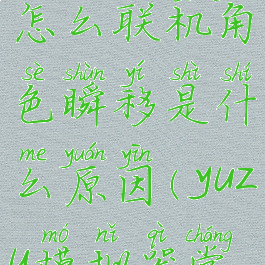 怎么联机角
sè shùn yí shì shí
色瞬移是什
me yuán yīn
么原因(yuz
mó nǐ qì cháng
u模拟器常